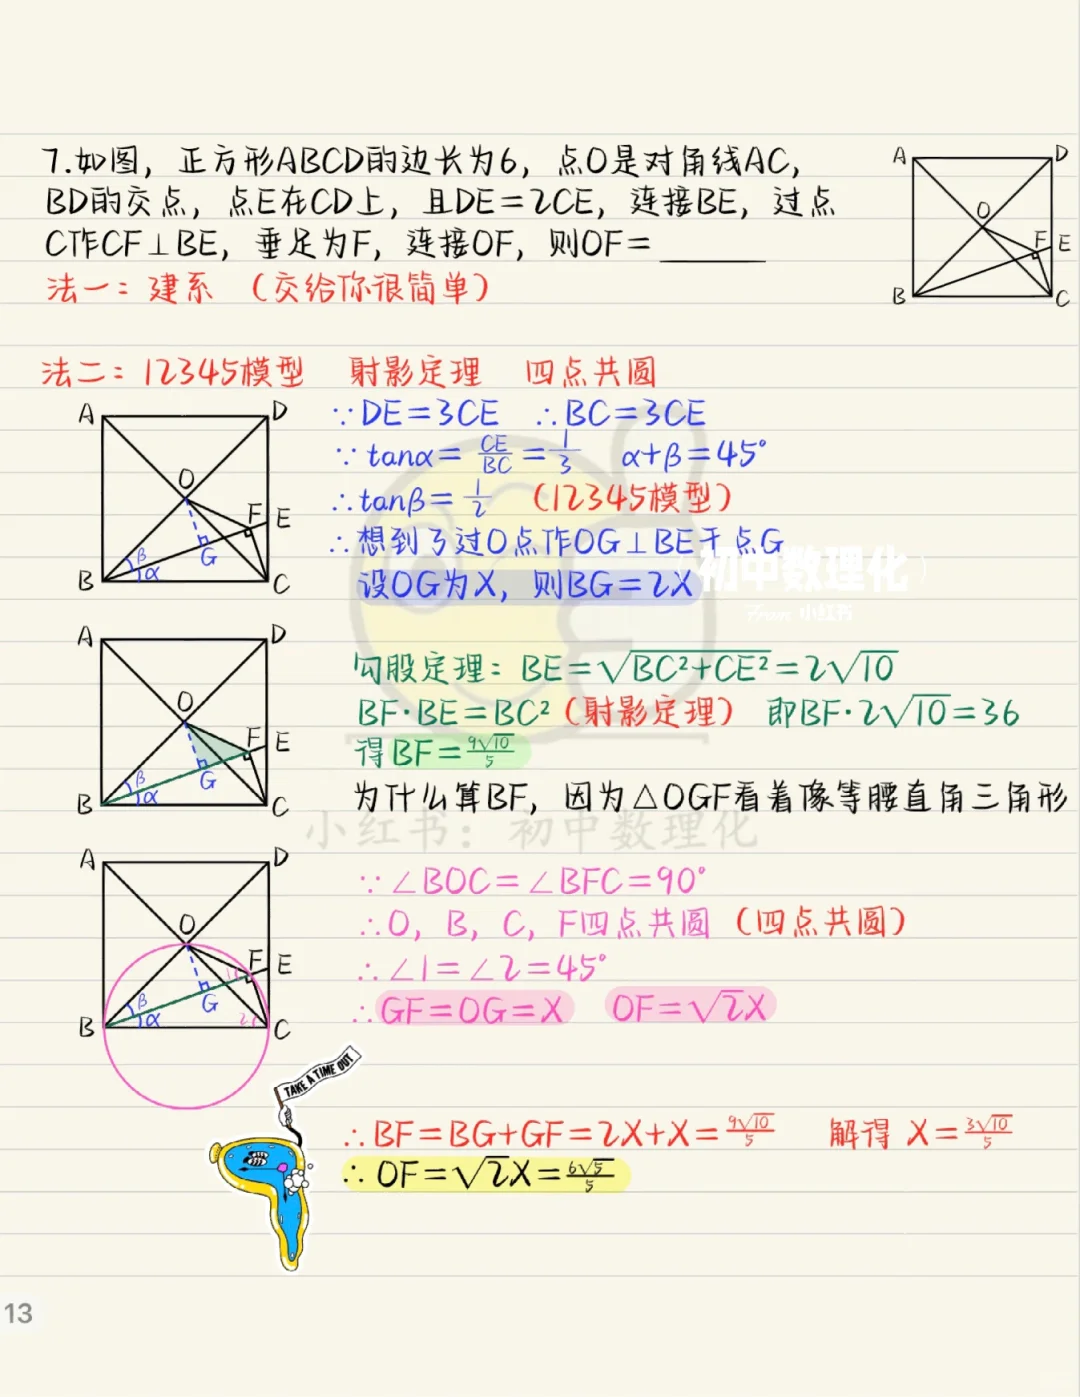 7.如图，正方形ABCD的边长为6，点O是对角线AC，
BD的交点，点E在CD上，且DE=2CE，连接BE，过点
C作CF⊥BE，垂足为F，连接OF，则OF=______
A D O F E B C
法一：建系 （交给你很简单）
法二：12345模型 射影定理 四点共圆
A D O F E β α G B C
∵DE=3CE ∴BC=3CE
∵tanα=CE/BC=1/3 α+β=45°
∴tanβ=1/2 （12345模型）
∴想到了过O点作OG⊥BE于点G
设OG为X，则BG=2X
（初中数理化）
From 小红书
A D O F E β α G B C
勾股定理：BE=√BC²+CE²=2√10
BF·BE=BC²（射影定理） 即BF·2√10=36
得BF=9√10/5
为什么算BF，因为△OGF看着像等腰直角三角形
小红书：初中数理化
A D O F E 1 β α G 2 B C
∵∠BOC=∠BFC=90°
∴O，B，C，F四点共圆（四点共圆）
∴∠1=∠2=45°
∴GF=OG=X OF=√2X
TAKE A TIME OUT
∴BF=BG+GF=2X+X=9√10/5 解得 X=3√10/5
∴OF=√2X=6√5/5
13